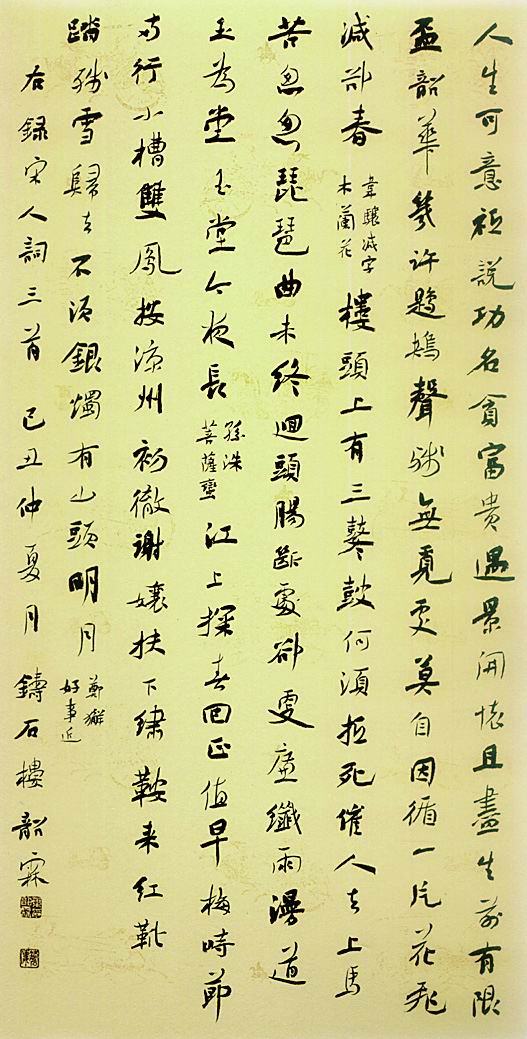 人生可意祗說功名貪富貴遇景開懷且盡生前有限
盃韶華幾許鶗鴂聲殘無覓處莫自因循一片花飛
減卻春 韋驤減字木蘭花 樓頭上有三鼕鼓何須抵死催人去上馬
苦怱怱琵琶曲未終迴頭腸斷處卻更廉纖雨漫道
玉為堂玉堂今夜長 孫洙菩薩蠻 江上探春回正值早梅時節
兩行小槽雙鳳按涼州初徹謝孃扶下繡鞍來紅靴
踏殘雪歸去不須銀燭有山頭明月 鄭獬好事近
右錄宋人詞三首 己丑仲夏月 鑄石樓韶霖